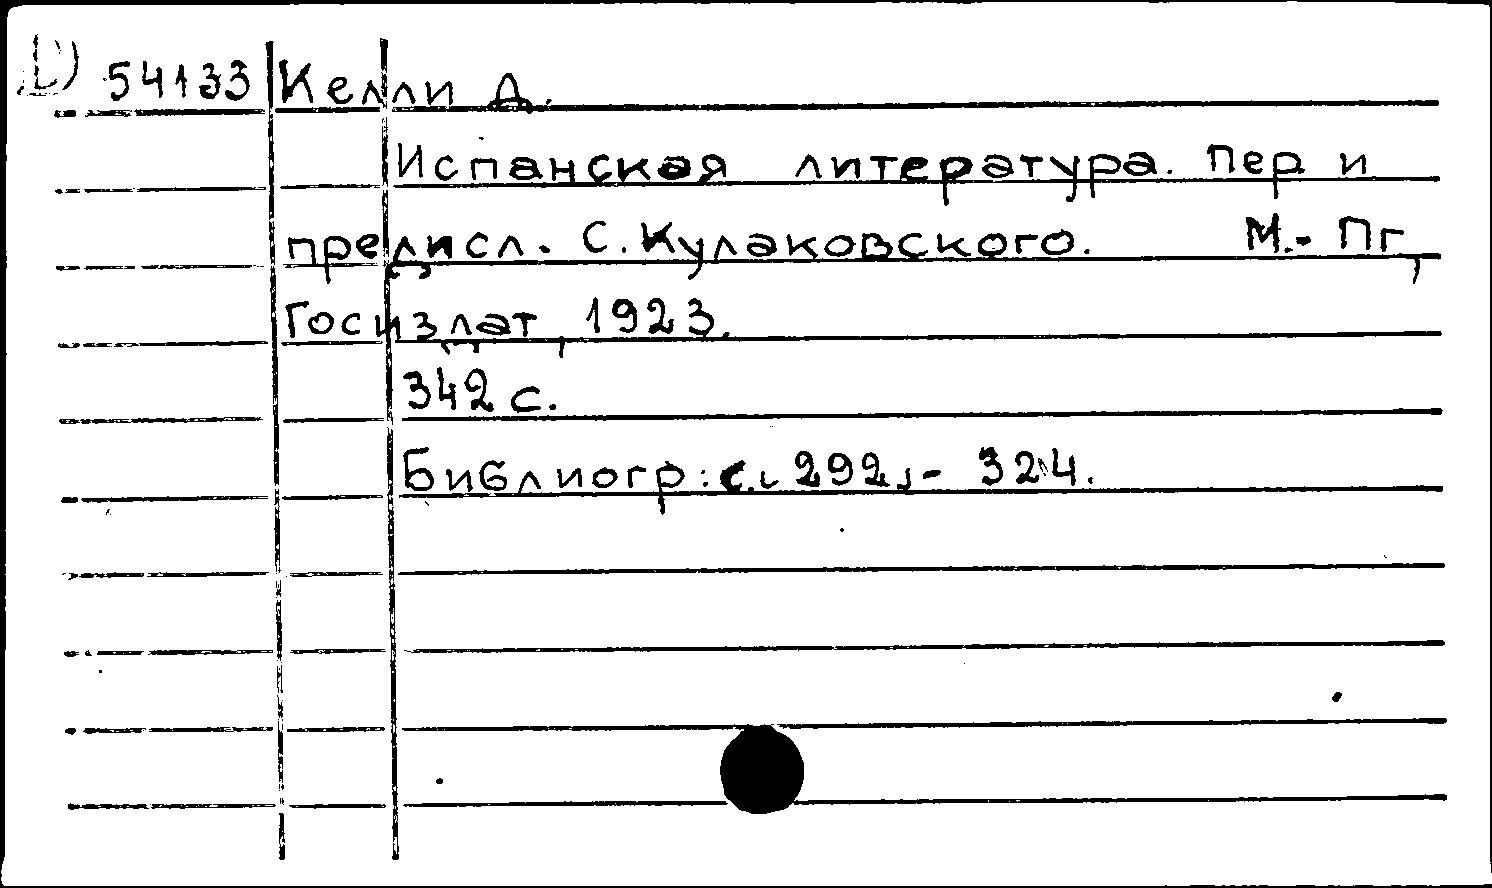 54133 Келли Д.
Испанская литература. Пер и
предисл. С. Кулаковского. М.- Пг,
Госиздат, 1923.
342 с.
Библиогр: с. 292 - 324.